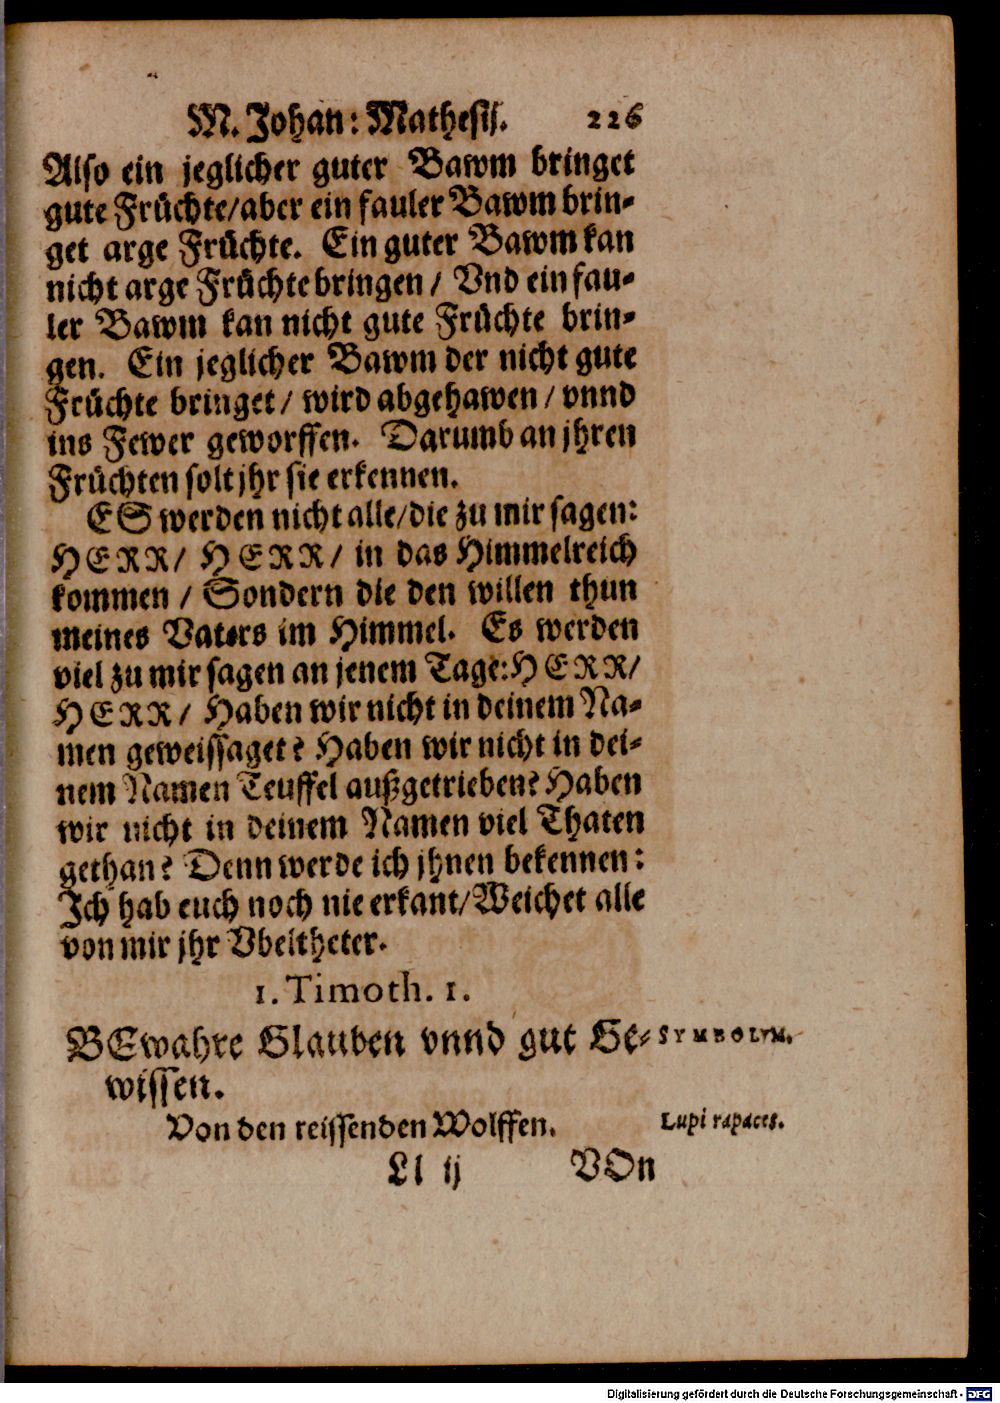 M. Johan: Mathesij. 226
Also ein jeglicher guter Bawm bringet
gute Früchte/aber ein fauler Bawm brin-
get arge Früchte. Ein guter Bawm kan
nicht arge Früchte bringen/ Vnd ein fau-
ler Bawm kan nicht gute Früchte brin-
gen. Ein jeglicher Bawm der nicht gute
Früchte bringet/ wird abgehawen/ vnnd
ins Fewer geworffen. Darumb an jhren
Früchten solt jhr sie erkennen.
ES werden nicht alle/die zu mir sagen:
HERR/ HERR/ in das Himmelreich
kommen / Sondern die den willen thun
meines Vaters im Himmel. Es werden
viel zu mir sagen an jenem Tage: HERR/
HERR/ Haben wir nicht in deinem Na-
men geweissaget? Haben wir nicht in dei-
nem Namen Teuffel außgetrieben? Haben
wir nicht in deinem Namen viel Thaten
gethan? Denn werde ich jhnen bekennen:
Ich hab euch noch nie erkant/Weichet alle
von mir jhr Vbeltheter.
1. Timoth. 1.
BEwahre Glauben vnnd gut Ge- SYMBOLVM.
wissen.
Von den reissenden Wolffen. Lupi rapaces.
Ll ij VOn
Digitalisierung gefördert durch die Deutsche Forschungsgemeinschaft - DFG